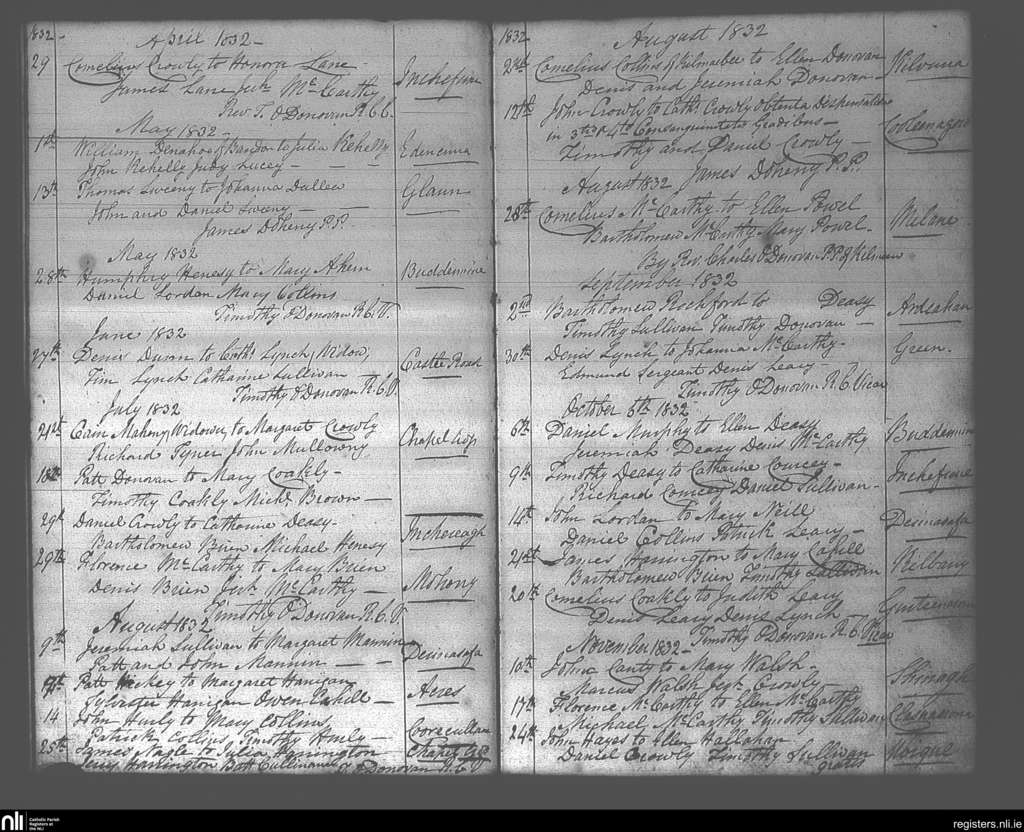 1832
April 1832
29 Cornelius Crowly to Honora Lane
James Lane Jerh. McCarthy Inchefune
Revd T. O'Donovan R.C.C.
May 1832
1st William Donahoe of Bandon to Julia Kehelly
John Kehelly Judy Lucey Edencurra
13th Thomas Sweny to Johanna Dullea Glaun
John and Daniel Sweny
James Doheny P.P.
May 1832
28th Humphry Henesy to Mary Ahern Buddermine
Daniel Lordan Mary Collins
Timothy O'Donovan R.C.V.
June 1832
27th Denis Duvan to Cath. Lynch, Widow, Castle Road
Tim Lynch Catharine Sullivan
Timothy O'Donovan R.C.V.
July 1832
21st Mahony Widower, to Margaret Crowly Chapel
Richard Tyner John Mullowny
18th Patt Donovan to Mary Coakly
Timothy Coakly Michl. Brown
29th Daniel Crowly to Catharine Deasy
Bartholomew Brien Michael Henesy
29th Florence McCarthy to Mary Brien
Denis Brien Jerh. McCarthy Mohony
Timothy O'Donovan R.C.V.
August 1832
9th Jeremiah Sullivan to Margaret Mannin
Patt and John Mannin
Patt Hickey to Margaret Hanigan
Sylvester Hanigan Owen Cahill Acres
14 John Hurly to Mary Collins
Patrick Collins, Timothy Hurly
25th James Nagle to Julia Harrington
Jerry Harrington Batt Cullinane
O'Donovan R.C.V.
1832
August 1832
23d Cornelius Collins of Kilmaber to Ellen Donovan
Denis and Jeremiah Donovan
12th John Crowly to Cath. Crowly obtenta Dispensatione
in 3tio & 4to Consanguinitatis Gradibus
Timothy and Daniel Crowly
August 1832 James Doheny P.P.
28th Cornelius McCarthy to Ellen Powel
Bartholomew McCarthy Mary Powel
By Rev. Charles O'Donovan P.P. of
September 1832
2nd Bartholomew Rochford to Deasy Ardcahan
Timothy Sullivan Timothy Donovan
30th Denis Lynch to Johanna McCarthy Green
Edmund Sergeant Denis Leary
Timothy O'Donovan R.C. Vicar
October 6th 1832
6th Daniel Murphy to Ellen Deasy
Jeremiah Deasy Denis McCarthy Buddermine
9th Timothy Deasy to Catharine Courcey
Richard Courcey Daniel Sullivan Inchefune
14th John Lordan to Mary Neill
Daniel Collins Patrick Leary
21st James Harrington to Mary Cahill
Bartholomew Brien Timothy Sullivan Kilbany
20th Cornelius Coakly to Judith Leary
Denis Leary Denis Lynch
November 1832 Timothy O'Donovan R.C. Vicar
10th John Canty to Mary Walsh
Marcus Walsh Jerh. Crowly
17th Florence McCarthy to Ellen McCarthy
Michael McCarthy Timothy Sullivan
24th John Hayes to Ellen Hallahan
Daniel Crowly Timothy Sullivan
gratis
nli Catholic Parish Registers at the NLI
registers.nli.ie